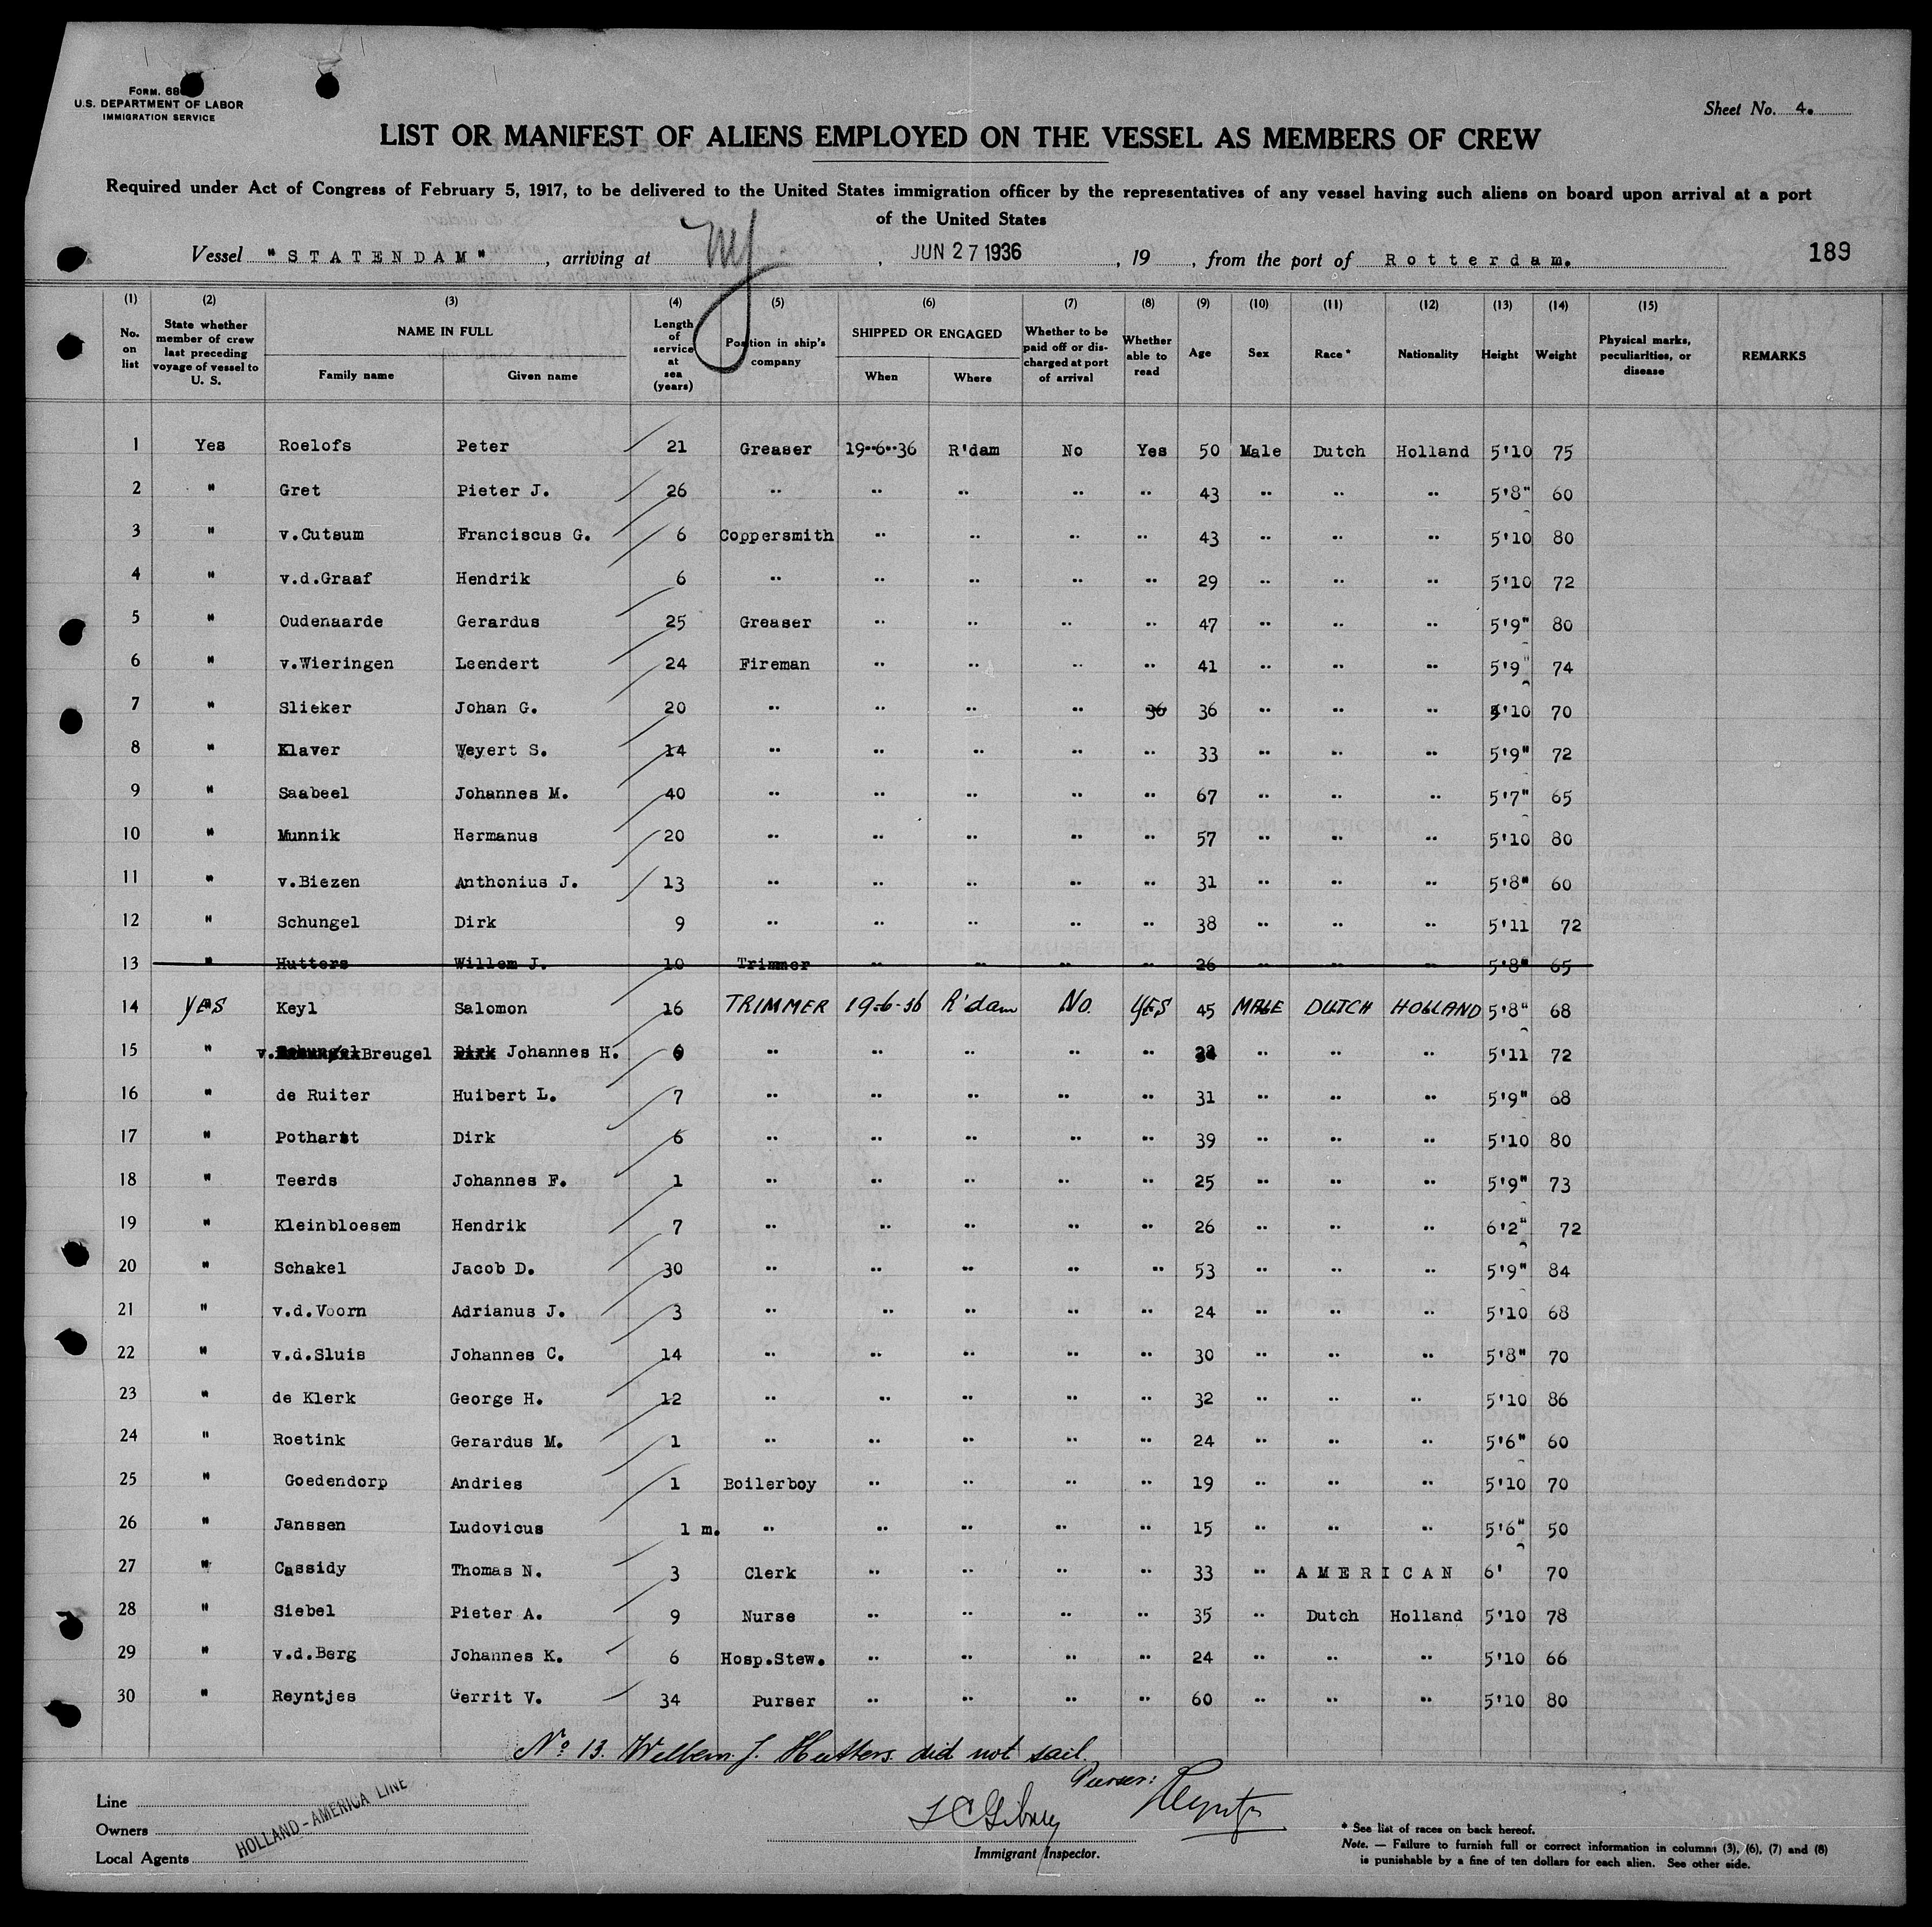 FORM. 68
U.S. DEPARTMENT OF LABOR
IMMIGRATION SERVICE
Sheet No. 4.
LIST OR MANIFEST OF ALIENS EMPLOYED ON THE VESSEL AS MEMBERS OF CREW
Required under Act of Congress of February 5, 1917, to be delivered to the United States immigration officer by the representatives of any vessel having such aliens on board upon arrival at a port
of the United States
Vessel "STATENDAM", arriving at NY, JUN 27 1936, 19 , from the port of Rotterdam. 189
(1) (2) (3) (4) (5) (6) (7) (8) (9) (10) (11) (12) (13) (14) (15)
No. on list State whether member of crew last preceding voyage of vessel to U. S. NAME IN FULL Family name Given name Length of service at sea (years) Position in ship's company SHIPPED OR ENGAGED When Where Whether to be paid off or discharged at port of arrival Whether able to read Age Sex Race* Nationality Height Weight Physical marks, peculiarities, or disease REMARKS
1 Yes Roelofs Peter 21 Greaser 19-6-36 R'dam No Yes 50 Male Dutch Holland 5'10 75
2 " Gret Pieter J. 26 " " " " " 43 " " " 5'8" 60
3 " v.Cutsum Franciscus G. 6 Coppersmith " " " " 43 " " " 5'10 80
4 " v.d.Graaf Hendrik 6 " " " " " 29 " " " 5'10 72
5 " Oudenaarde Gerardus 25 Greaser " " " " 47 " " " 5'9" 80
6 " v.Wieringen Leendert 24 Fireman " " " " 41 " " " 5'9" 74
7 " Slieker Johan G. 20 " " " " 36 36 " " " 5'10 70
8 " Klaver Weyert S. 14 " " " " " 33 " " " 5'9" 72
9 " Saabeel Johannes M. 40 " " " " " 67 " " " 5'7" 65
10 " Munnik Hermanus 20 " " " " " 57 " " " 5'10 80
11 " v.Biezen Anthonius J. 13 " " " " " 31 " " " 5'8" 60
12 " Schungel Dirk 9 " " " " " 38 " " " 5'11 72
13 " Hutters Willem J. 10 Trimmer " " " " 26 " " " 5'8" 65
14 YES Keyl Salomon 16 TRIMMER 19-6-36 R'dam No. YES 45 MALE DUTCH HOLLAND 5'8" 68
15 " v. Schungel Breugel Dirk Johannes H. " " " " " " " " 5'11 72
16 " de Ruiter Huibert L. 7 " " " " " 31 " " " 5'9" 68
17 " Potharst Dirk 6 " " " " " 39 " " " 5'10 80
18 " Teerds Johannes F. 1 " " " " " 25 " " " 5'9" 73
19 " Kleinbloesem Hendrik 7 " " " " " 26 " " " 6'2" 72
20 " Schakel Jacob D. 30 " " " " " 53 " " " 5'9" 84
21 " v.d.Voorn Adrianus J. 3 " " " " " 24 " " " 5'10 68
22 " v.d.Sluis Johannes C. 14 " " " " " 30 " " " 5'8" 70
23 " de Klerk George H. 12 " " " " " 32 " " " 5'10 86
24 " Roetink Gerardus M. 1 " " " " " 24 " " " 5'6" 60
25 " Goedendorp Andries 1 Boilerboy " " " " 19 " " " 5'10 70
26 " Janssen Ludovicus 1 m. " " " " " 15 " " " 5'6" 50
27 " Cassidy Thomas N. 3 Clerk " " " " 33 " AMERICAN 6' 70
28 " Siebel Pieter A. 9 Nurse " " " " 35 " Dutch Holland 5'10 78
29 " v.d.Berg Johannes K. 6 Hosp.Stew. " " " " 24 " " " 5'10 66
30 " Reyntjes Gerrit V. 34 Purser " " " " 60 " " " 5'10 80
No 13. Willem. J. Hutters did not sail.
Purser:
Line
Owners
Local Agents
HOLLAND-AMERICA LINE
Immigrant Inspector.
* See list of races on back hereof.
Note. — Failure to furnish full or correct information in columns (3), (6), (7) and (8)
is punishable by a fine of ten dollars for each alien. See other side.